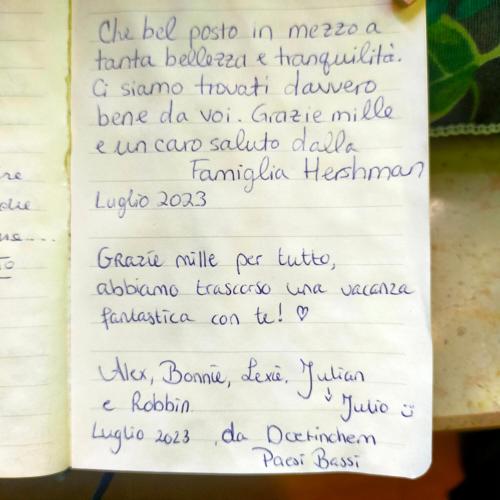 re
die
ne....
To
Che bel posto in mezzo a
tanta bellezza e tranquilità.
Ci siamo trovati davvero
bene da voi. Grazie mille
e un caro saluto dalla
Famiglia Hershman
Luglio 2023
Grazie mille per tutto,
abbiamo trascorso una vacanza
fantastica con te! ♡
Alex, Bonnie, Lexie, Julian
e Robbin. Julio
Luglio 2023, da Doetinchem
Paesi Bassi